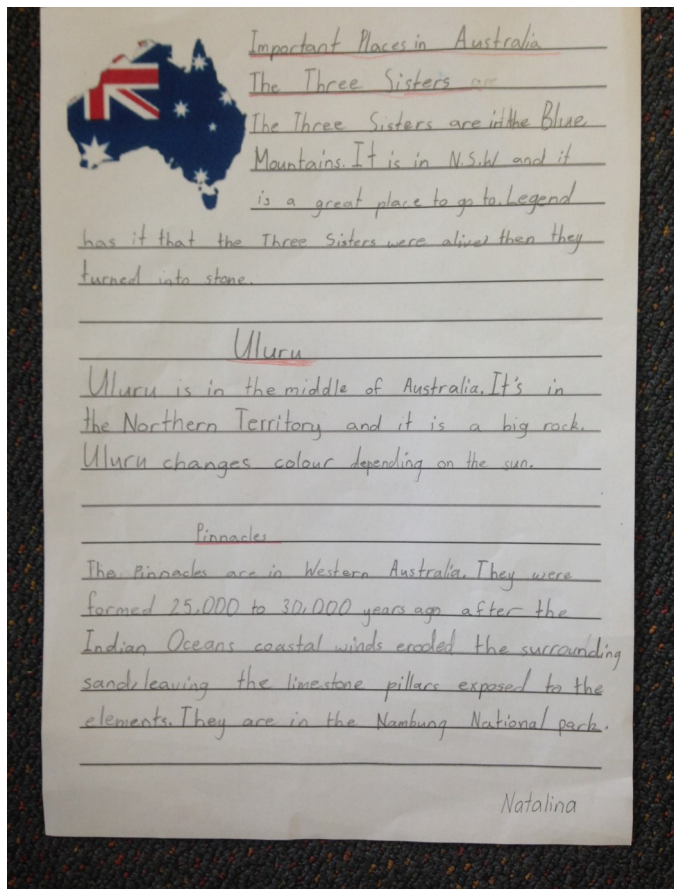 Important Places in Australia
The Three Sisters are
The Three Sisters are in the Blue
Mountains. It is in N.S.W and it
is a great place to go to. Legend
has it that the Three Sisters were alive, then they
turned into stone.
Uluru
Uluru is in the middle of Australia. It's in
the Northern Territory and it is a big rock.
Uluru changes colour depending on the sun.
Pinnacles
The Pinnacles are in Western Australia. They were
formed 25,000 to 30,000 years ago after the
Indian Oceans coastal winds eroded the surrounding
sand, leaving the limestone pillars exposed to the
elements. They are in the Nambung National park.
Natalina